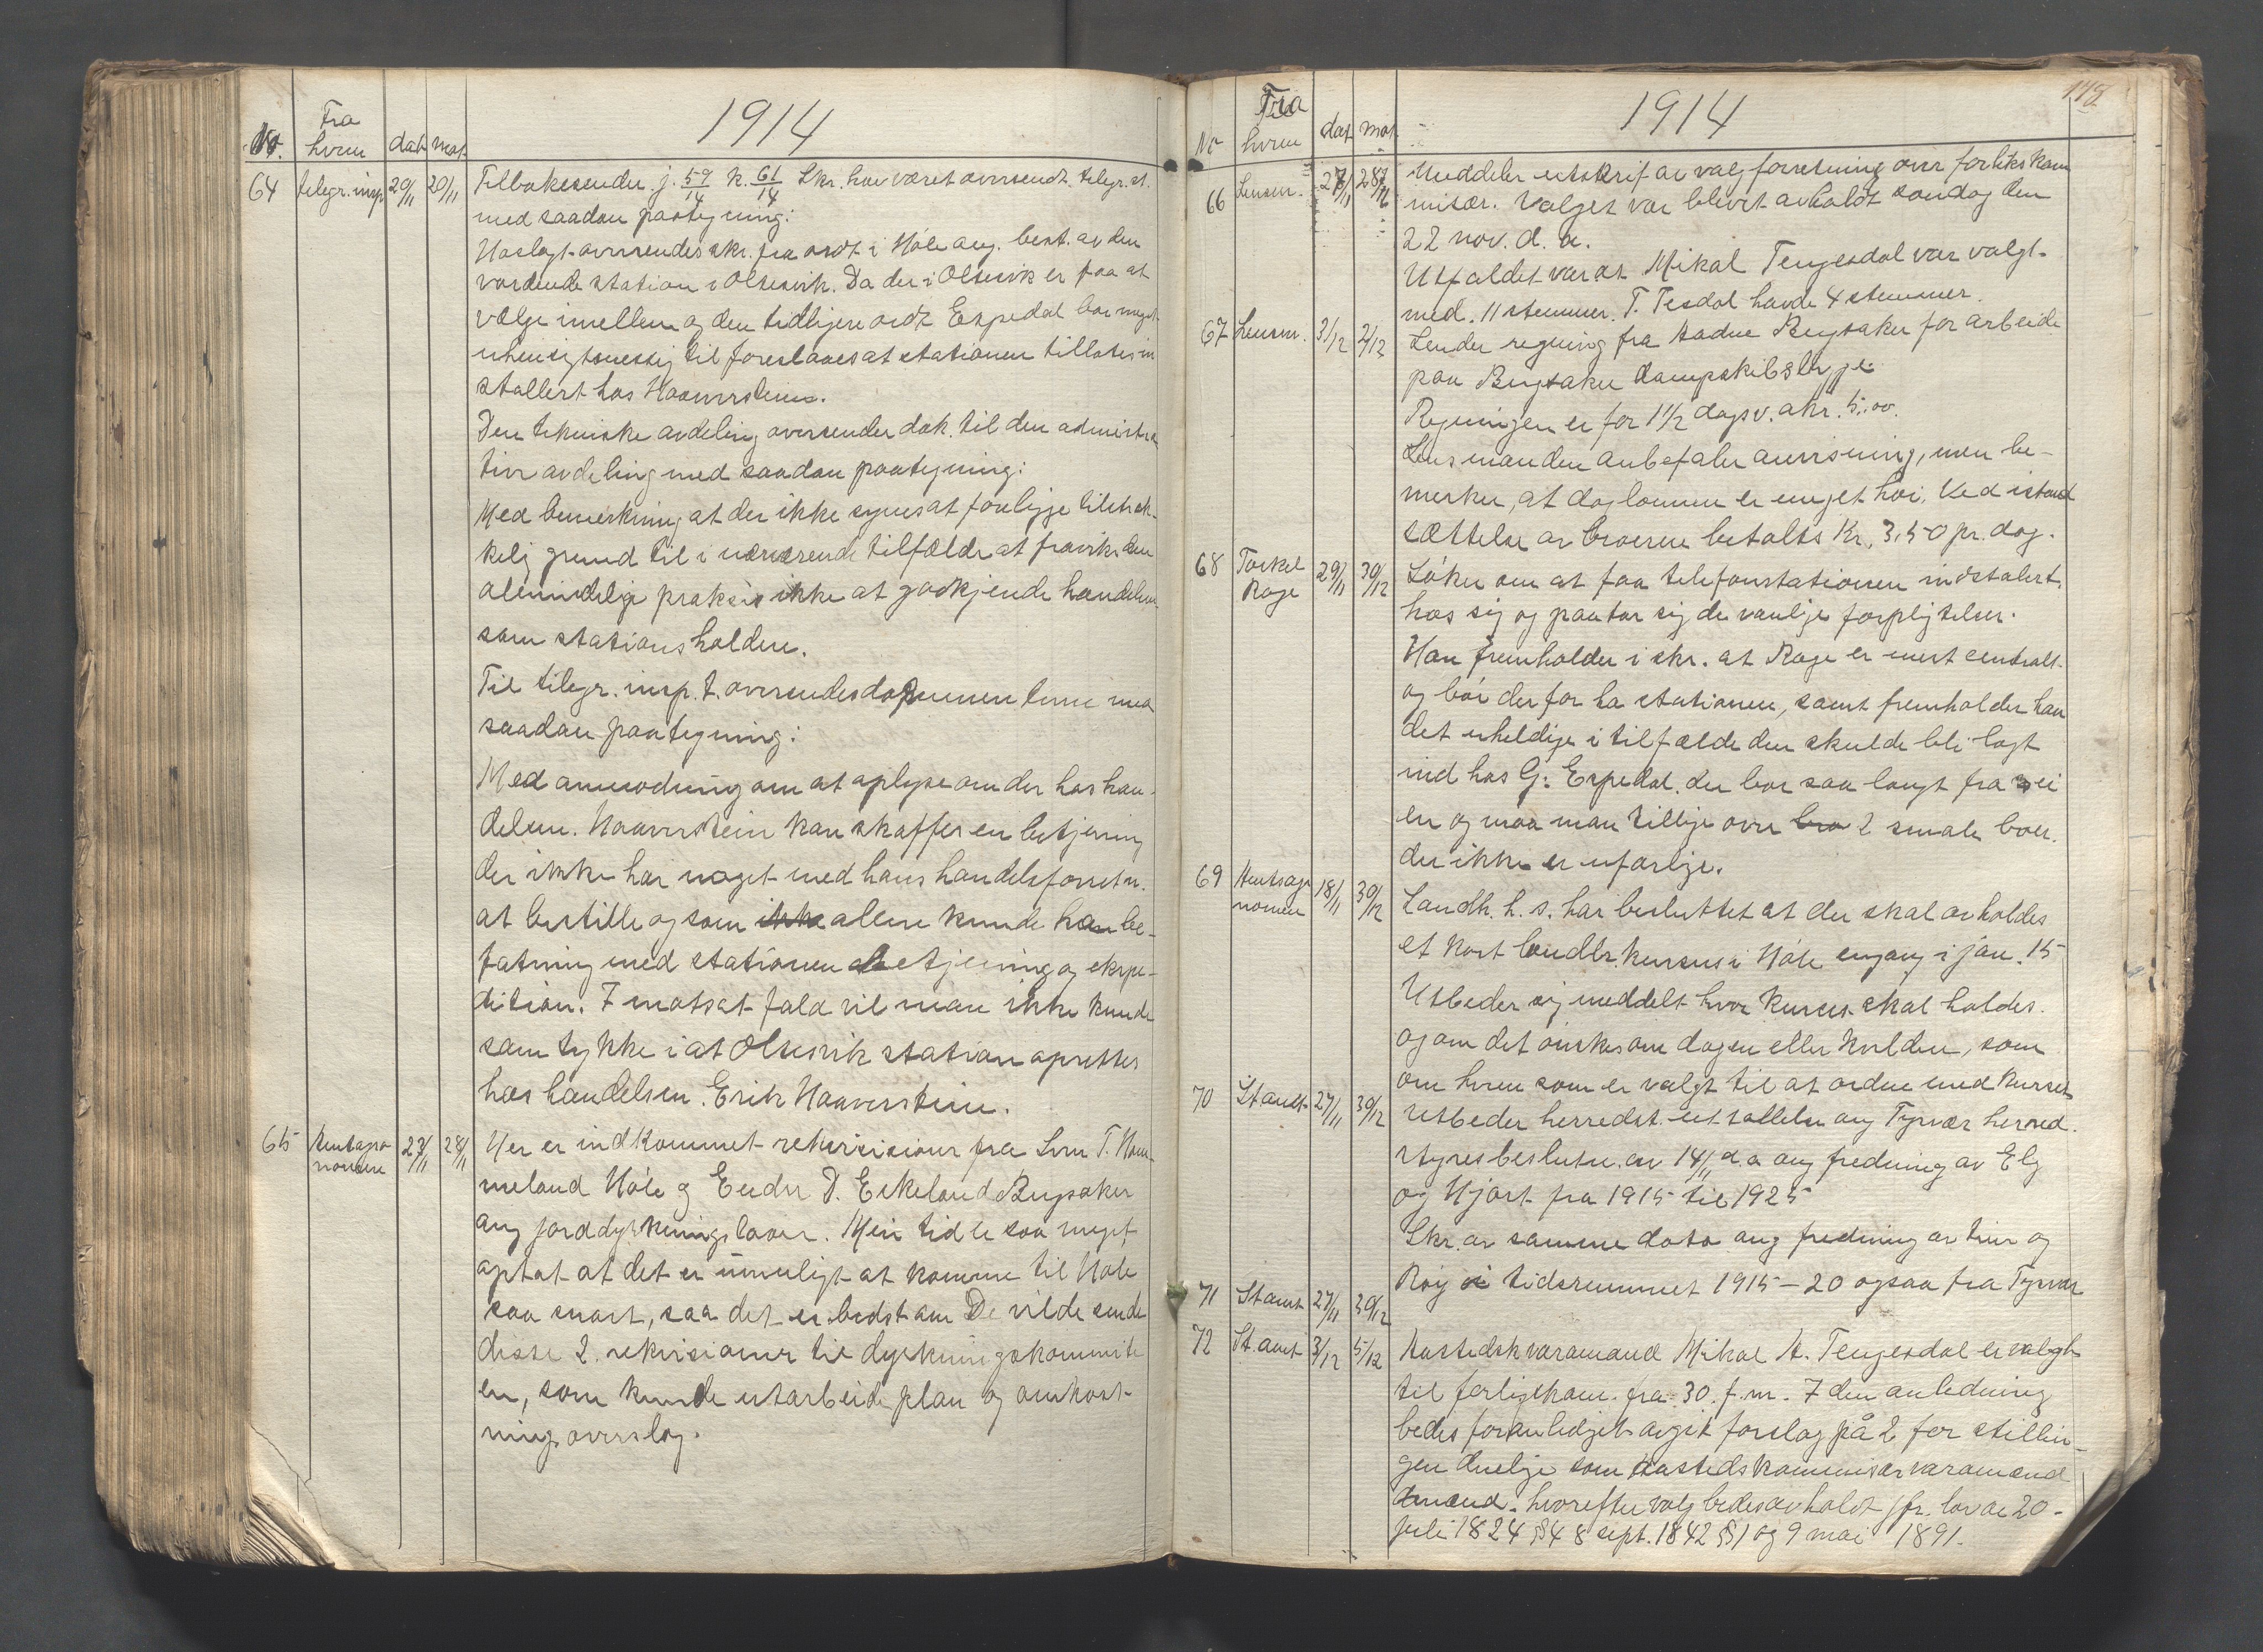 1914
No. Fra hvem dat. mot.
64 telegr. insp 20/11 20/11 Tilbakesender j. 59/14 k. 61/14 Skr. har været oversendt telegr. st.
med saadan paategning:
Vaslagt oversendes skr. fra ordf. i Høle ang. best. av den
vordende station i Oltesvik. Da der i Oltesvik er faa at
vælge imellem og den tidligere ordf. Espedal bor meget
uhensigtsmessig til foreslaaes at stationen tillates in
stallert hos Haaverstein.
Den tekniske avdeling oversender dok. til den administra
tive avdeling med saadan paategning:
Med bemerkning at der ikke synes at foreligge tilstræk-
kelig grund til i nærværende tilfælde at fravike den
almindelige praksis ikke at godkjende handelsm.
som stationsholdere.
Til telegr. insp. t. oversendes dokumentene med
saadan paategning:
Med anmodning om at oplyse om der hos han-
delsm. Haaverstein kan skaffes en betjening
der ikke har noget med hans handelsforretn.
at bestille og som ikke allene kunde ha be-
fatning med stationen betjening og ekspe-
dition. I motsat fald vil man ikke kunde
samtykke i at Oltesvik station oprettes
hos handelsm. Erik Haaverstein.
65 Amtagro nomen 27/11 28/11 Her er indkommet rekvisisioner fra Sven T. Hom-
meland Høle og Endre D. Eikeland Bersaker
ang jorddyrkningslaan. Min tid er saa meget
optat at det er umuligt at komme til Høle
saa snart, saa det er bedst om De vilde sende
disse 2. rekvisioner til dyrkningskommite
en, som kunde utarbeide plan og omkost-
nings overslag.
1914
148
No Fra hvem dat. mot.
66 Lensm. 27/11 28/11 Meddeler utskrift av valgforretning over forlikskom
misær. Valget var blevet avholdt søndag den
22 nov. d. a.
Utfaldet var at Mikal Tengesdal var valgt
med. 11 stemmer. T. Tesdal havde 4 stemmer.
67 Lensm. 3/12 4/12 Sender regning fra Aadne Bersaker for arbeide
paa Bersaker dampskibsbrygge.
Regningen er for 1 1/2 dagsv. a kr. 5,00.
Lensmanden anbefaler anvisning, men be-
merker, at daglønnen er meget høi. Ved istand
sættelse av broerne betaltes Kr. 3.50 pr. dag.
68 Torkel Rage 29/11 30/12 Søker om at faa telefonstationen indstalert
hos sig og paatar sig de vanlige forpligtelser.
Han fremholder i skr. at Rage er mest centralt
og bør derfor ha stationen, samt fremholder han
det uheldige i tilfælde den skulde bli lagt
ind hos G. Espedal. der bor saa langt fra vei
en og maa man tillige over bro 2 smale broer.
der ikke er ufarlige.
69 Amtsagro nomen 18/11 30/12 Landh. h. s. har besluttet at der skal avholdes
et kort landbr. kursus i Høle engang i jan. 15
Utbeder sig meddelt hvor kurset skal holdes.
og om det ønskes om dagen eller kvelden, som
om hvem som er valgt til at ordne med kurset
70 Stamt. 27/11 30/12 Utbeder herredst. uttallelse ang Tysvær herred.
styresbeslutn. av 14/11 d. a ang fredning av Elg
og Hjort fra 1915 til 1925
71 Stamt 27/11 30/12 Skr. av samme dato ang fredning av tiur og
Røy i tidsrummet 1915 - 20 ogsaa fra Tysvær
72 St. amt 3/12 5/12 Aastedskvaramand Mikal A. Tengesdal er valgt
til forligskom. fra 30. f. m. I den anledning
bedes foranlediget avgit forslag på 2 for stillin-
gen duelige som Aastedskommisærvaramænd
dmænd. hvorefter valg bedes avholdt jfr. lov av 20-
juli 1824 §4 8 sept. 1842 §1 og 9 mai 1891.